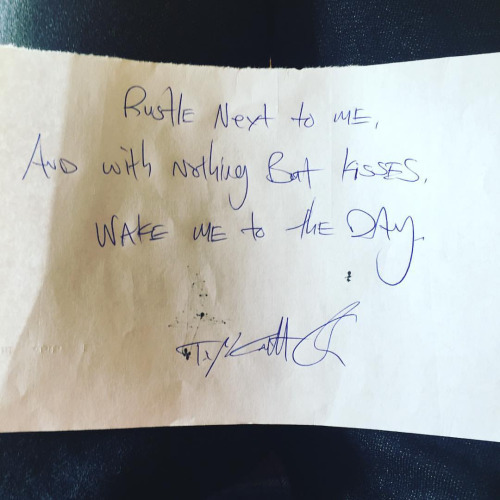 Rustle Next to ME,
AND with Nothing But KISSES,
WAKE ME to the DAy.